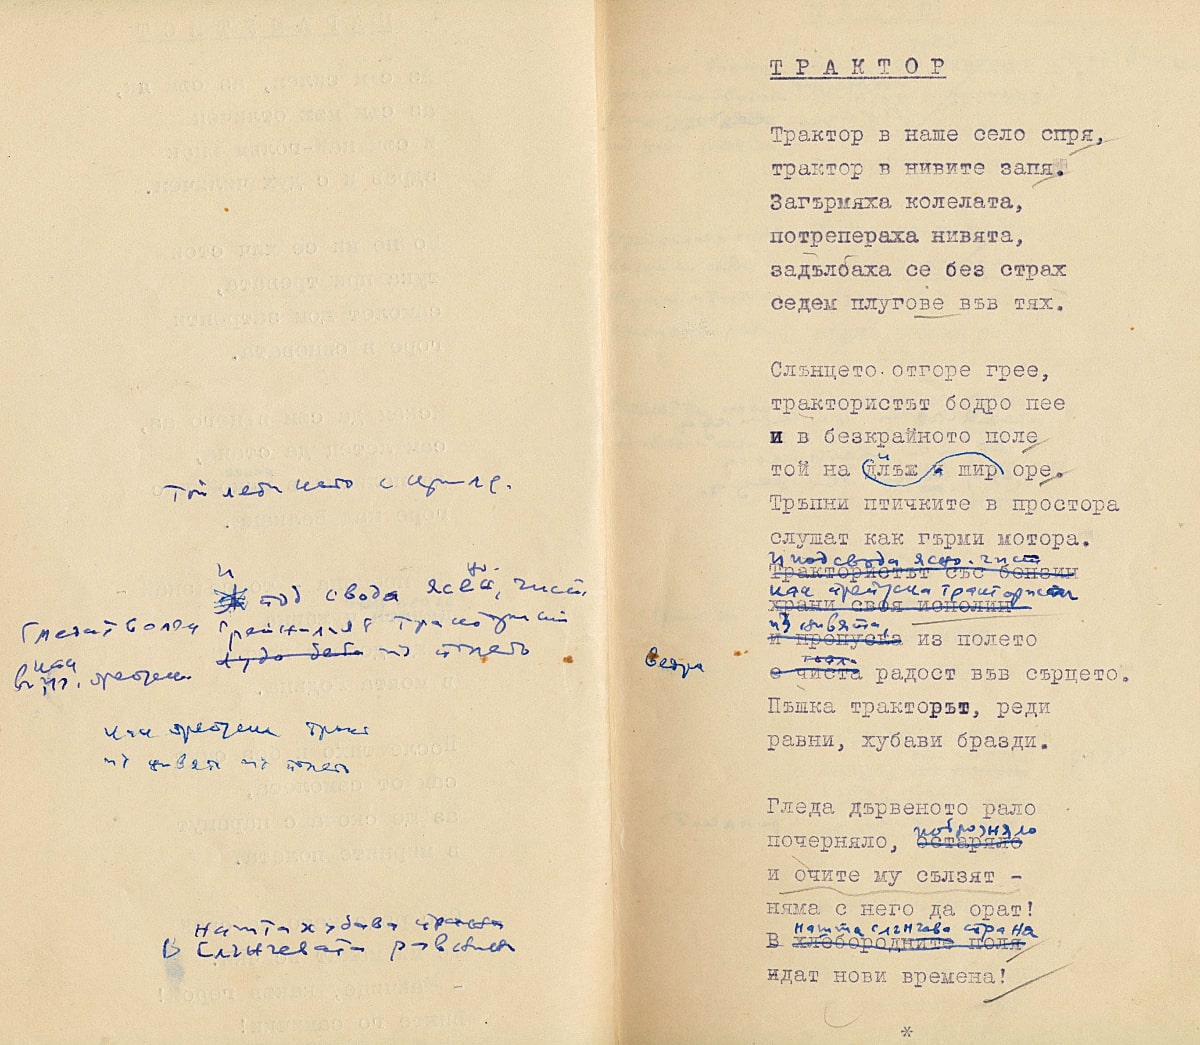 Той лети като с криле.
И
под свода ясен, чист,
из полето
как препуска
из нивята из полето
Нашта хубава страна
В слънчевата равнина
ТРАКТОР
Трактор в наше село спря,
трактор в нивите запя.
Загърмяха колелата,
потрепераха нивята,
задълбаха се без страх
седем плугове във тях.
Слънцето отгоре грее,
трактористът бодро пее
и в безкрайното поле
той на длъж и шир оре.
Тръпни птичките в простора
слушат как гърми мотора.
И под свода ясно-чист
Трактористът със бензин
как препуска тракторист
храни своя исполин
из нивята,
и препуска из полето
ведра
с чиста радост във сърцето.
Пъшка тракторът, реди
равни, хубави бразди.
Гледа дървеното рало
почерняло, остаряло
и очите му сълзят -
няма с него да орат!
нашта слънчева страна
В хлебородните поля
идат нови времена!
*